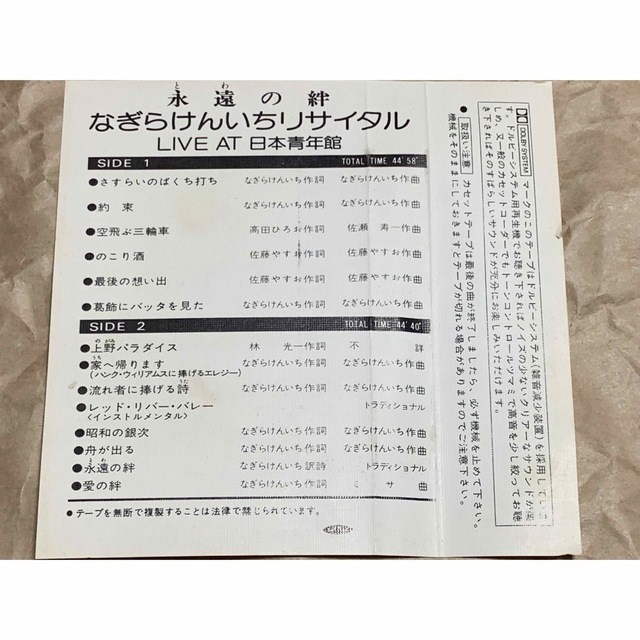 永遠の絆
とわ
なぎらけんいちリサイタル
LIVE AT 日本青年館
SIDE 1 TOTAL TIME 44'58"
●さすらいのばくち打ち なぎらけんいち作詞 なぎらけんいち作曲
●約束 なぎらけんいち作詞 なぎらけんいち作曲
●空飛ぶ三輪車 高田ひろお作詞 佐瀬寿一作曲
●のこり酒 佐藤やすお作詞 佐藤やすお作曲
●最後の想い出 佐藤やすお作詞 佐藤やすお作曲
●葛飾にバッタを見た なぎらけんいち作詞 なぎらけんいち作曲
SIDE 2 TOTAL TIME 44'40"
●上野パラダイス 林光一作詞 不詳
のがみ
●家へ帰ります なぎらけんいち作詞 なぎらけんいち作曲
うち
(ハンク・ウィリアムスに捧げるエレジー)
●流れ者に捧げる詩 なぎらけんいち作詞 なぎらけんいち作曲
うた
●レッド・リバー・バレー トラディショナル
<インストルメンタル>
●昭和の銀次 なぎらけんいち作詞 なぎらけんいち作曲
●舟が出る なぎらけんいち作詞 なぎらけんいち作曲
●永遠の絆 なぎらけんいち訳詩 トラディショナル
とわ
●愛の絆 なぎらけんいち作詞 ミサ曲
●テープを無断で複製することは法律で禁じられています。
DOLBY SYSTEM マークのこのテープはドルビーシステム(雑音減少装置)を採用しています。ドルビーシステム用再生機でお聴き下さればノイズの少ないクリアーなサウンドが
しめ、又一般のカセットコーダーでもトーンコントロールツマミで高音を少し絞ってお聴き下さればそのすばらしいサウンドが充分にお楽しみいただけます。
●取扱い注意 カセットテープは最後の曲が終了しましたら、必ず機械を止めて下さい。
機械をそのままにしておきますとテープが切れる場合がありますのでご注意下さい。